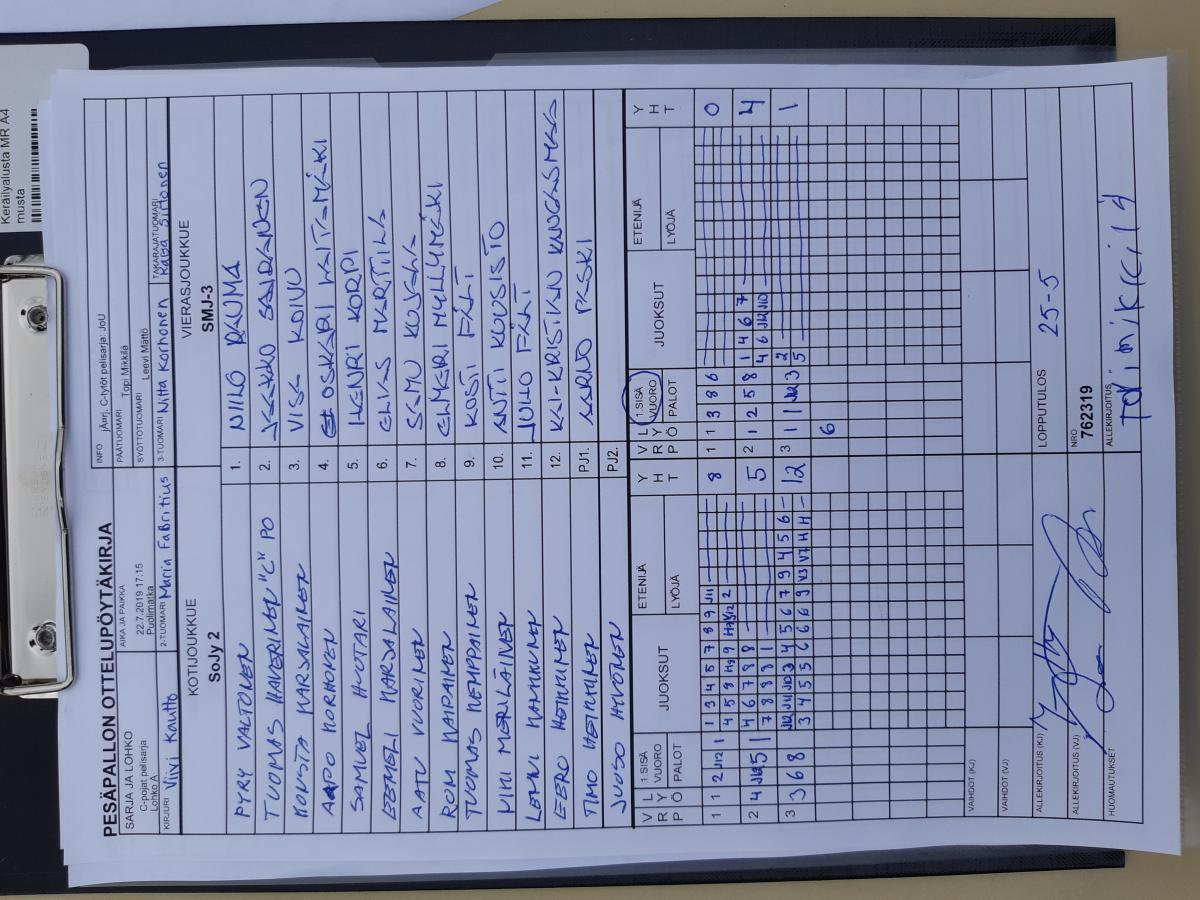 Keräilyalusta MR A4
musta
PESÄPALLON OTTELUPÖYTÄKIRJA
SARJA JA LOHKO
C-pojat pelisarja
Lohko A
AIKA JA PAIKKA
22.7.2019 17.15
Puolimatka
INFO jÄnrj. C-tytöt pelisarja: JoU
PÄÄTUOMARI Topi Mikkilä
SYÖTTÖTUOMARI Leevi Mättö
KIRJURI Viivi Kautto
2-TUOMARI Maria Fabritius
3-TUOMARI Nitta Korhonen
TAKARAJATUOMARI Raija Siltonen
KOTIJOUKKUE
SoJy 2
VIERASJOUKKUE
SMJ-3
PYRY VALTONEN 1. NIILO RAUMA
TUOMAS HAVERINEN "C" PO 2. JAAKKO SAIRANEN
KONSTA KARJALAINEN 3. VISA KOIVU
AAPO KORHONEN 4. OSKARI LAITAMÄKI
SAMUEL HUOTARI 5. HENRI KORPI
EEMELI KARJALAINEN 6. ELIAS MARTTILA
AATU VUORINEN 7. SAMU KUJALA
RONI HAIPAINEN 8. ELMERI MYLLYMÄKI
TUOMAS KEMPPAINEN 9. KOSTI PÄÄT
MIKI MERILÄINEN 10. ANTTI KOUSISTO
LENNI KAHKONEN 11. JUHO PÄÄT
EERO HEIKKINEN 12. KAI-KRISTIAN KANGASMAA
TIMO HEIKKINEN PJ1. AARNO PASKI
JUUSO HUOTINEN PJ2.
V R P L Y Ö 1.SISÄ VUORO PALOT JUOKSUT ETENIJÄ LYÖJÄ Y H T V R P L Y Ö 1.SISÄ VUORO PALOT JUOKSUT ETENIJÄ LYÖJÄ Y H T
1 1 2 J12 1 1 3 4 5 7 8 9 J11 8 1 1 3 8 6 0
4 5 9 H9 9 2
2 4 J12 5 1 4 6 7 8 8 5 2 1 2 5 8 1 4 6 7 4
7 8 8 9 1 4 6 J12 J10
3 3 6 8 J12 J11 J10 3 4 5 6 7 9 4 5 6 12 3 1 1 J12 3 2 1
3 4 5 5 6 6 6 9 V3 V7 H H 5
6
VAIHDOT (KJ)
VAIHDOT (VJ)
ALLEKIRJOITUS (KJ)
LOPPUTULOS 25-5
ALLEKIRJOITUS (VJ)
NRO
762319
HUOMAUTUKSET
ALLEKIRJOITUS